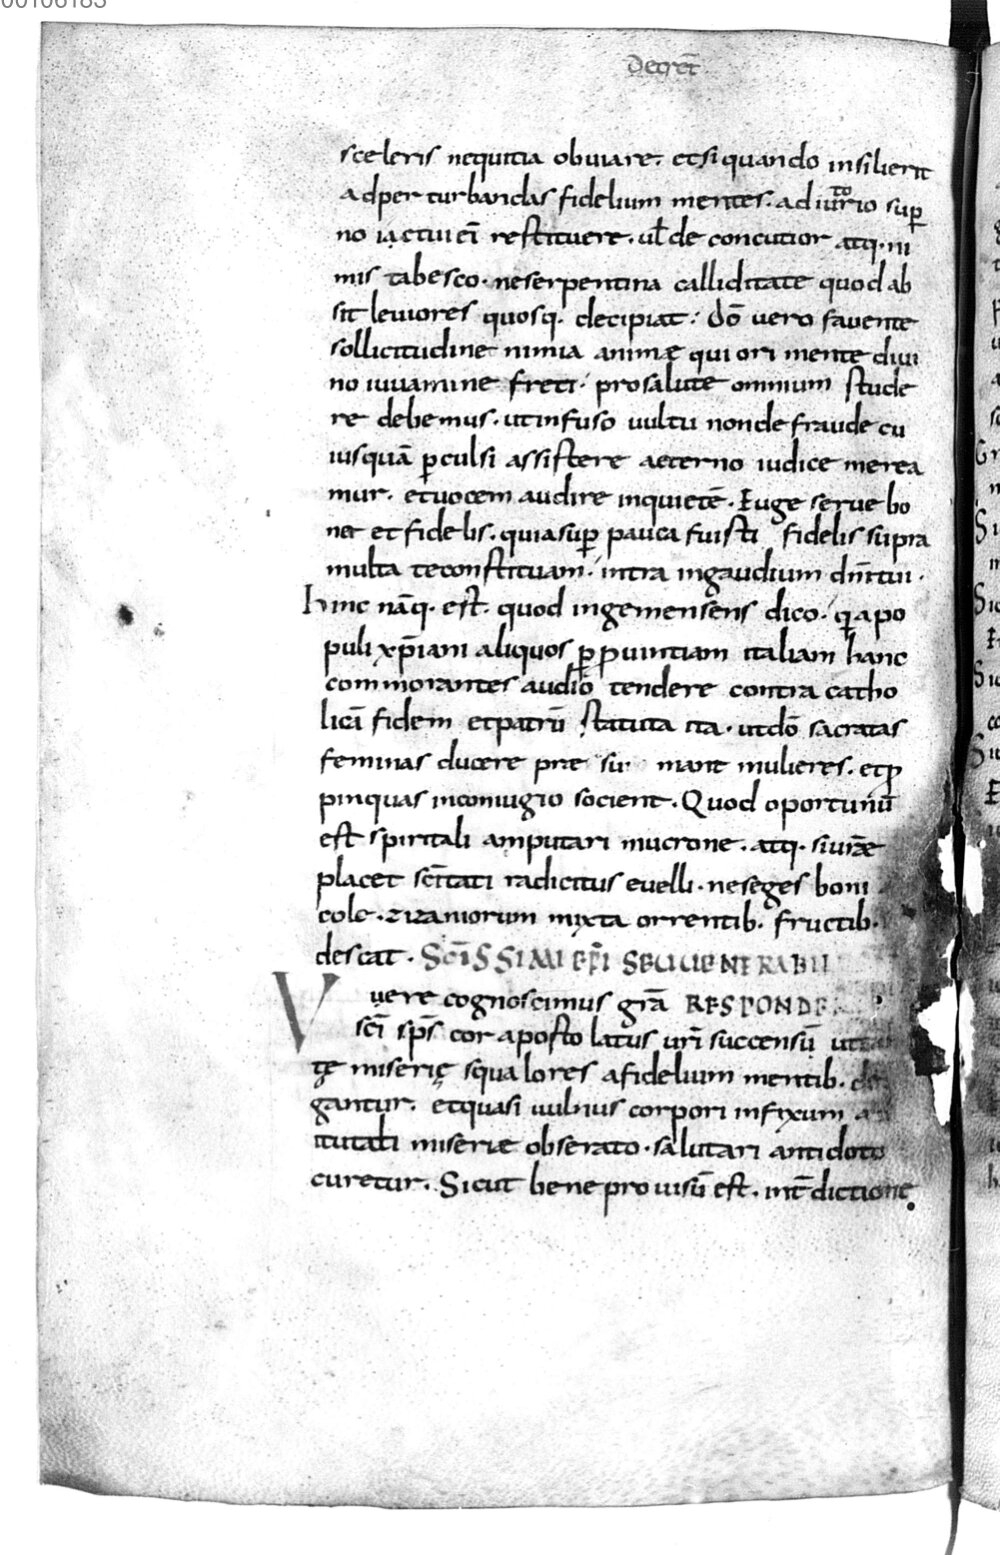 00106183
Decret̄
sceleris nequitia obuiare· etsi quando insilierit
ad perturbandas fidelium mentes· ad iurito sup̄
no iactui eī restituere· uł de concutior atq· ni
mis tabesco· ne serpentina calliditate quod ab
sit leuiores quosq· decipiat· dō uero fauente
sollicitudine nimia animę qui ori mente diui
no iuuamine freti· pro salute omnium stude
re debemus· ut infuso uultu non de fraude cu
iusquā p̱culsi assistere aeterno iudice merea
mur· et uocem audire inquietē· Euge serue bo
ne et fidelis· quia sup̄ pauca fuisti fidelis supra
multa te constituam· intra in gaudium dn̄i tui·
hinc nāq· est· quod ingemensens dico· q̄ a po
puli xp̄iani aliquos p̱ p̱uintiam italiam hanc
commorantes audio tendere contra catho
licā fidem et patrū statuta ita· ut dō sacratas
feminas ducere prae su mant mulieres· et p̱
pinquas in coniugio socient· Quod oportunū
est spiritali amputari mucrone· atq· si urae
placet sc̄itati radicitus euelli· ne seges boni
cole· zizaniorum mixta orrentib· fructib·
descat· SC̄ISSIMI EP̄I SECUENERABII
Vuere cognoscimus grā RESPONDE
sc̄i sp̄s cor apostolatus ur̄i succensū ut
tę miserię squalores a fidelium mentib· de
gantur· et quasi uulnus corpori infixum a
itutali miserię obserato· salutari antidoto
curetur· Sicut bene prouisū est· int̄dictione